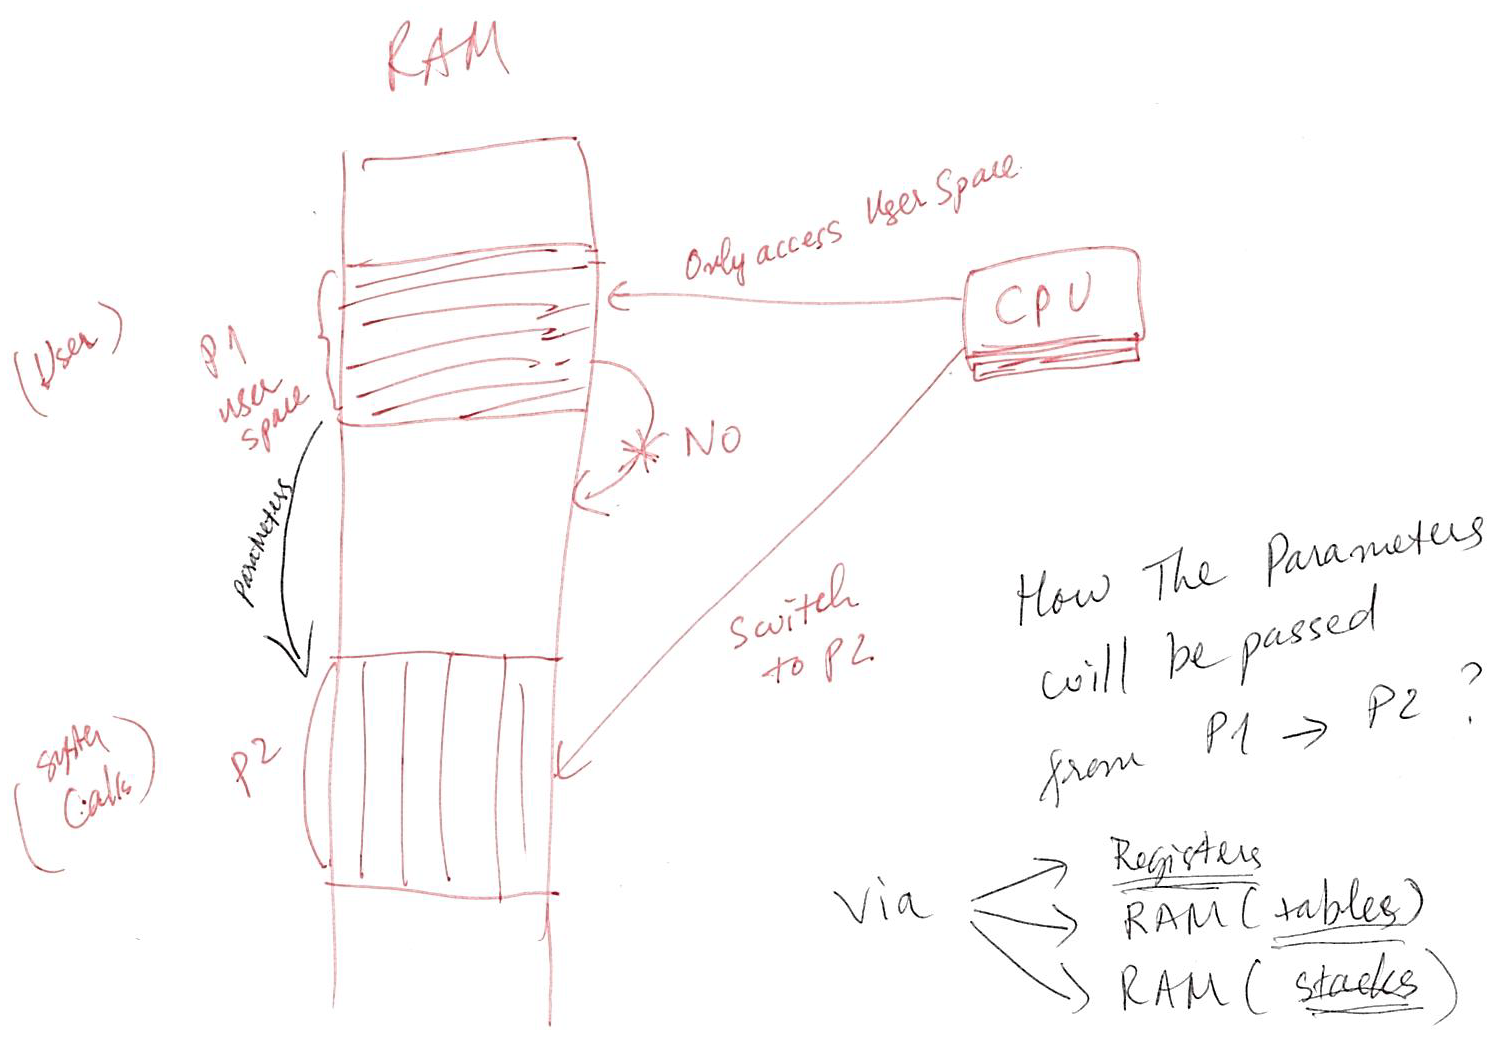 RAM
Only access User Space
CPU
(User)
P1
user
space
NO
Parameters
Switch
to P2
How The Parameters
will be passed
from P1 → P2 ?
P2
Calls)
Via
Registers
RAM (tables)
RAM (stacks)